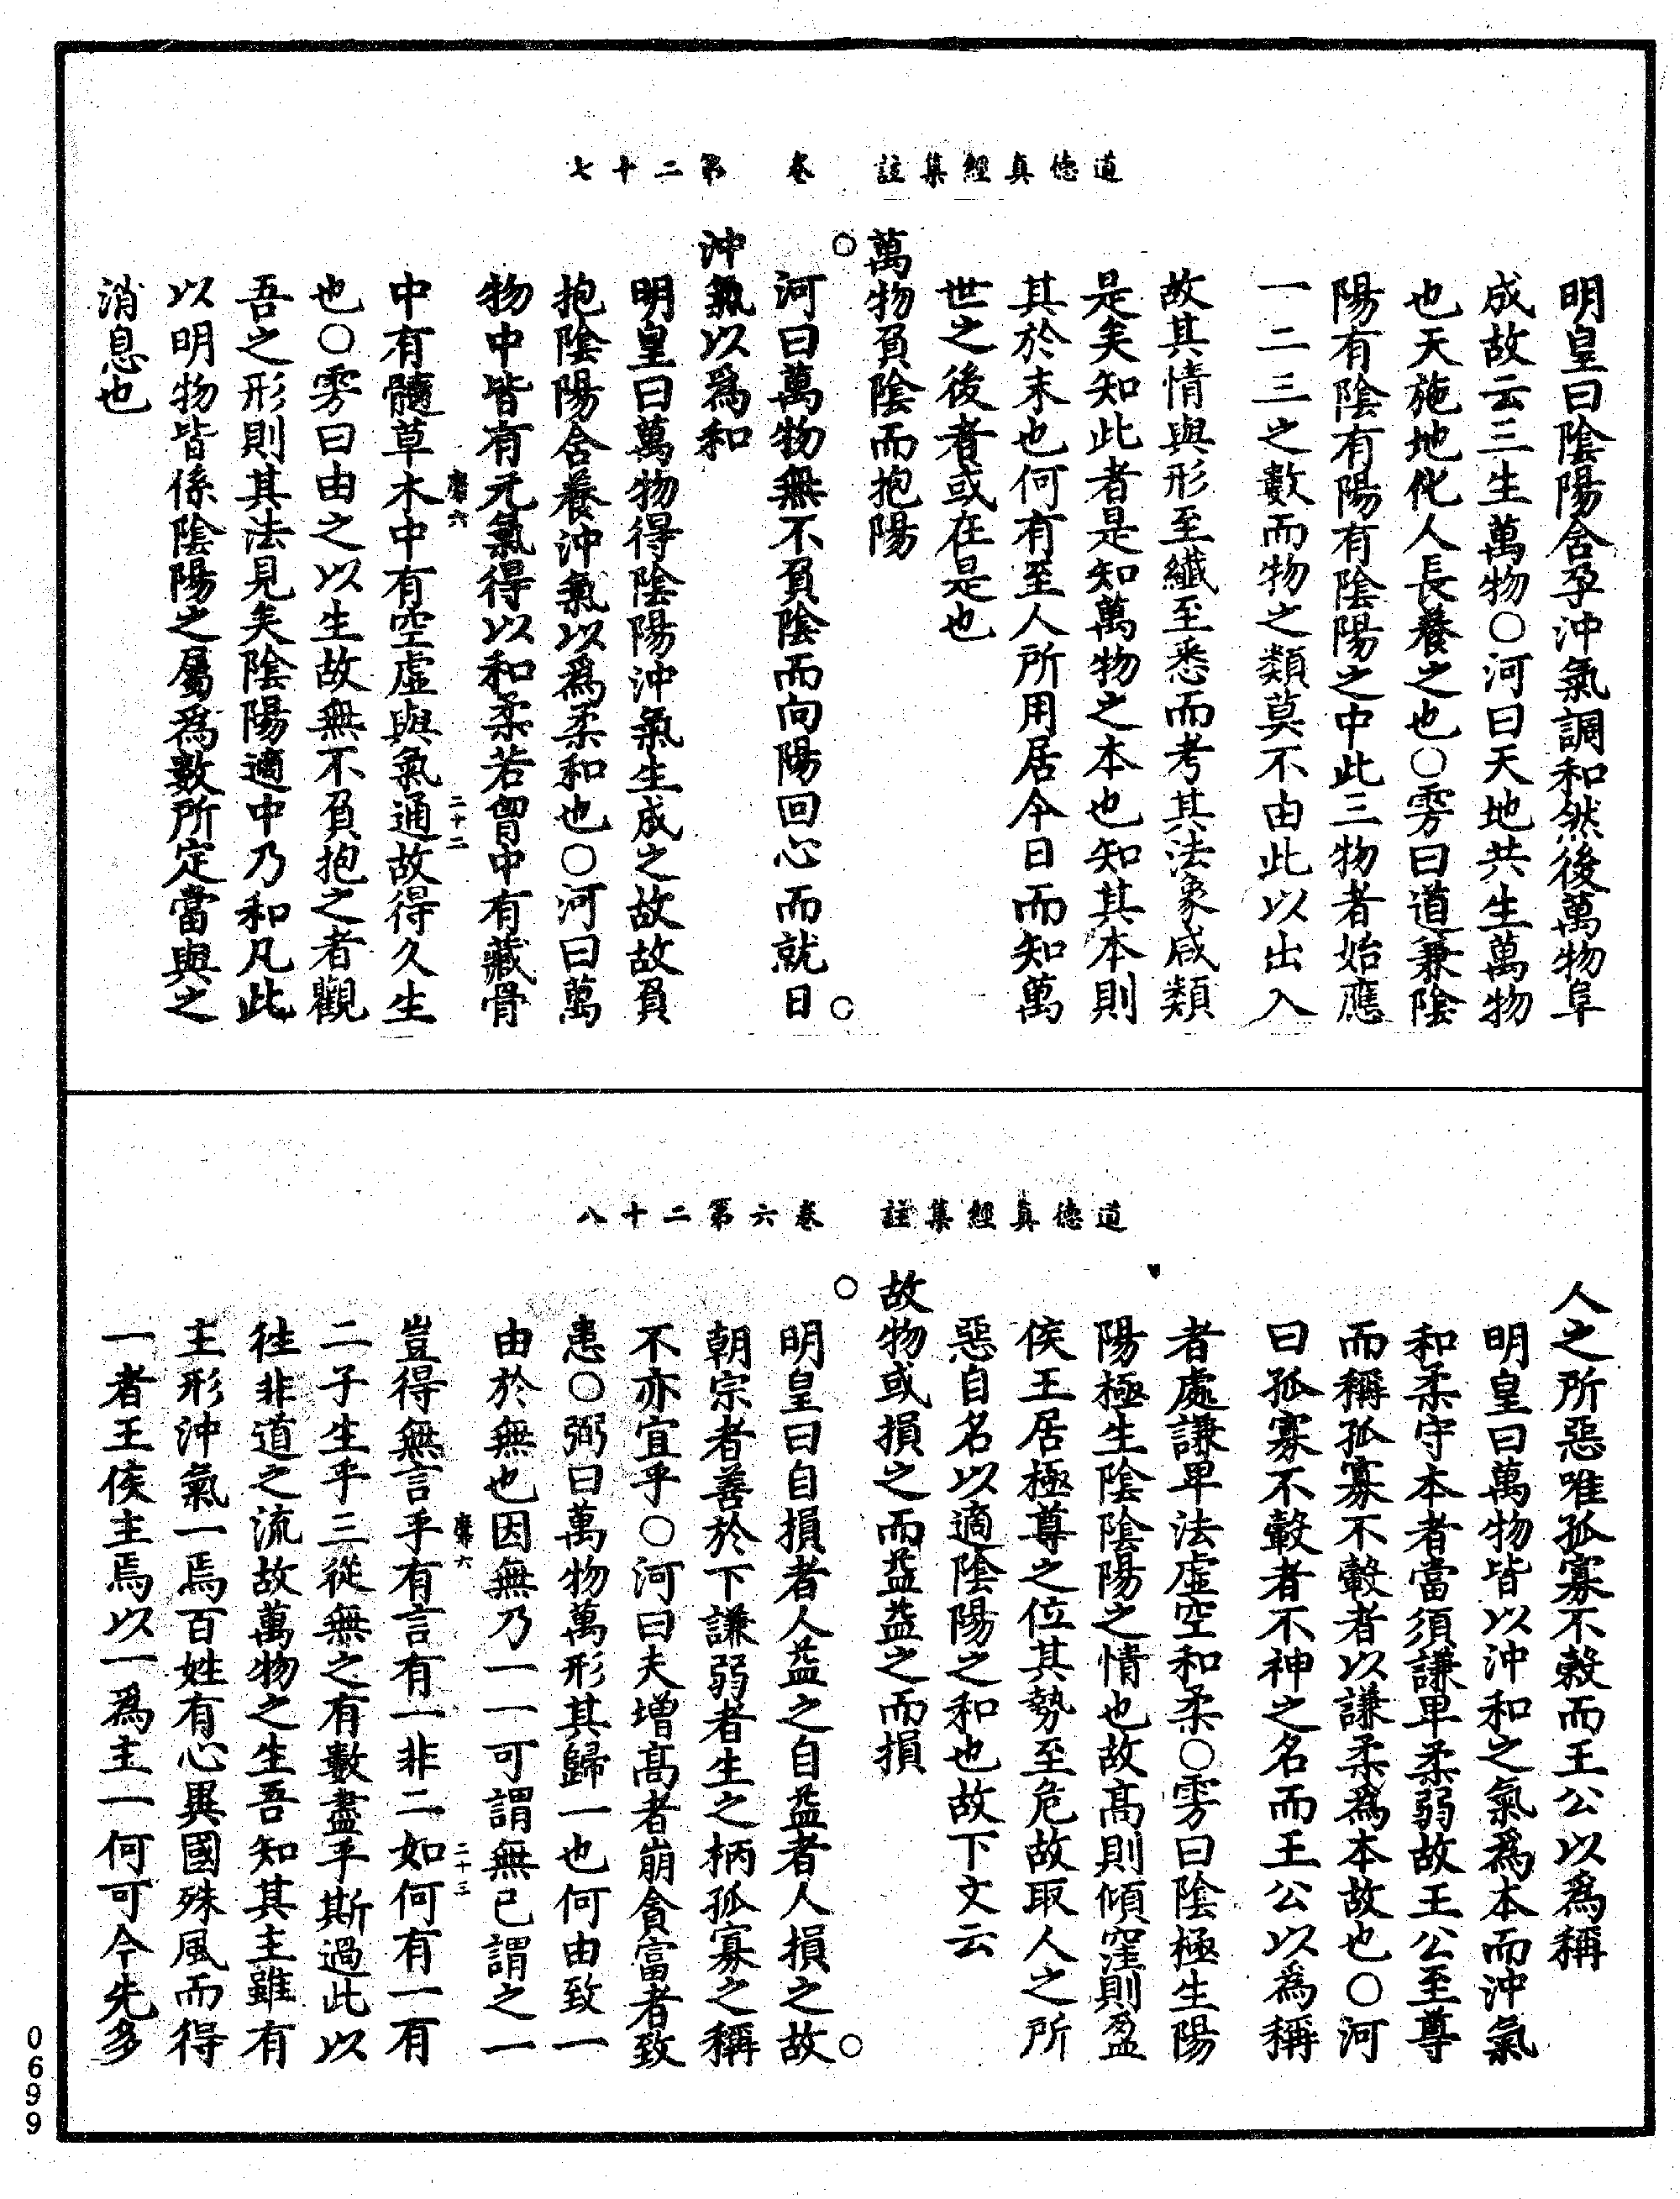 道德真經集註 卷 第二十七
明皇曰陰陽含孕沖氣調和然後萬物阜
成故云三生萬物○河曰天地共生萬物
也天施地化人長養之也○雱曰道兼陰
陽有陰有陽有陰陽之中此三物者始應
一二三之數而物之類莫不由此以出入
故其情與形至纖至悉而考其法象咸類
是矣知此者是知萬物之本也知其本則
其於末也何有至人所用居今日而知萬
世之後者或在是也
萬物負陰而抱陽
○河曰萬物無不負陰而向陽回心而就日○
沖氣以為和
明皇曰萬物得陰陽沖氣生成之故故負
抱陰陽含養沖氣以為柔和也○河曰萬
物中皆有元氣得以和柔若胷中有藏骨
靡六 二十二
中有髓草木中有空虛與氣通故得久生
也○雱曰由之以生故無不負抱之者觀
吾之形則其法見矣陰陽適中乃和凡此
以明物皆係陰陽之屬為數所定當與之
消息也
道德真經集註 卷六第二十八
人之所惡唯孤寡不穀而王公以為稱
明皇曰萬物皆以沖和之氣為本而沖氣
和柔守本者當須謙卑柔弱故王公至尊
而稱孤寡不轂者以謙柔為本故也○河
曰孤寡不轂者不神之名而王公以為稱
者處謙卑法虛空和柔○雱曰陰極生陽
陽極生陰陰陽之情也故高則傾窪則盈
侯王居極尊之位其勢至危故取人之所
惡自名以適陰陽之和也故下文云
故物或損之而益益之而損
○明皇曰自損者人益之自益者人損之故○
朝宗者善於下謙弱者生之柄孤寡之稱
不亦宜乎○河曰夫增高者崩貪富者致
患○弼曰萬物萬形其歸一也何由致一
由於無也因無乃一一可謂無已謂之一
靡六 二十三
豈得無言乎有言有一非二如何有一有
二子生乎三從無之有數盡乎斯過此以
往非道之流故萬物之生吾知其主雖有
主形沖氣一焉百姓有心異國殊風而得
一者王侯主焉以一為主一何可今先多
0699